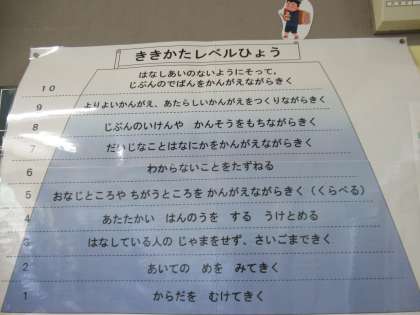 ききかたレベルひょう
はなしあいのないようにそって、
10 じぶんのでばんをかんがえながらきく
9 よりよいかんがえ、あたらしいかんがえをつくりながらきく
8 じぶんのいけんや かんそうをもちながらきく
7 だいじなことはなにかをかんがえながらきく
6 わからないことをたずねる
5 おなじところや ちがうところを かんがえながらきく（くらべる）
4 あたたかい はんのうを する うけとめる
3 はなしている人の じゃまをせず、さいごまできく
2 あいての めを みてきく
1 からだを むけてきく